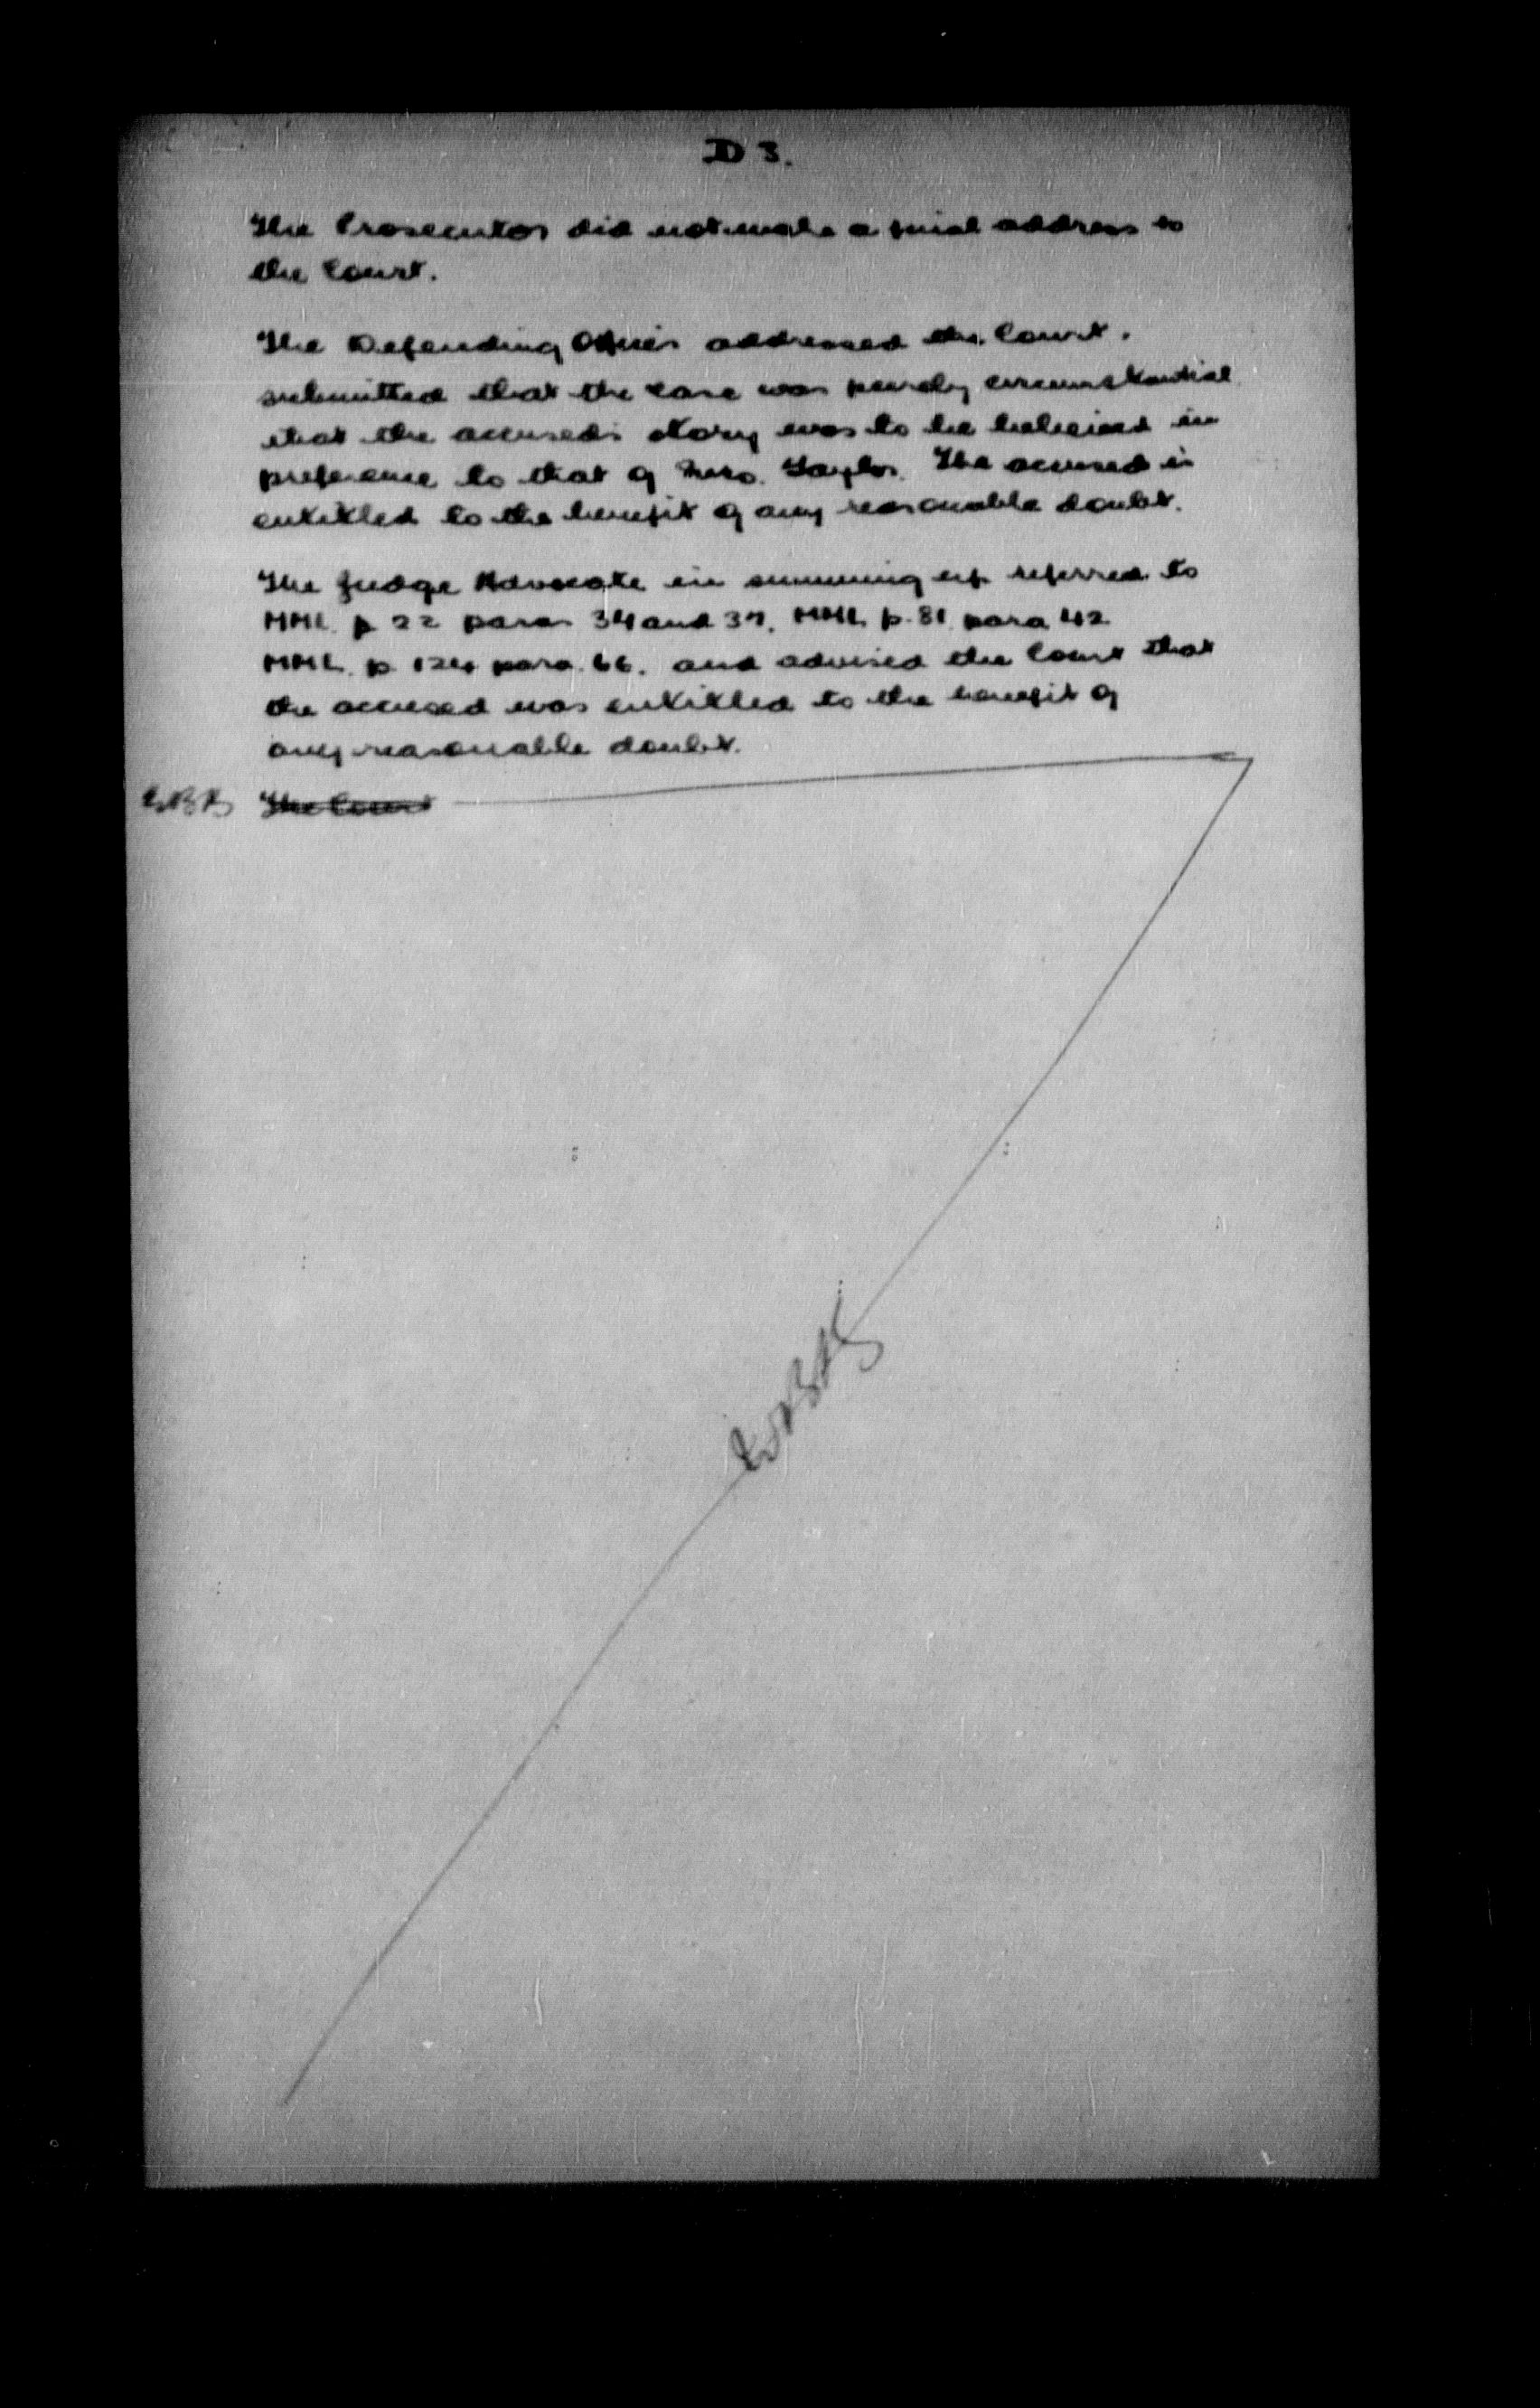 D 3.
The Prosecutor did not make a final address to
the Court.
The Defending Officer addressed the Court.
submitted that the case was purely circumstantial
that the accused's story was to be believed in
preference to that of Mrs. Taylor. The accused is
entitled to the benefit of any reasonable doubt.
The Judge Advocate in summing up referred to
MML. p 22 paras 34 and 37, MML p. 81. para 42
MML. p 124 para. 66. and advised the Court that
the accused was entitled to the benefit of
any reasonable doubt.
The Court